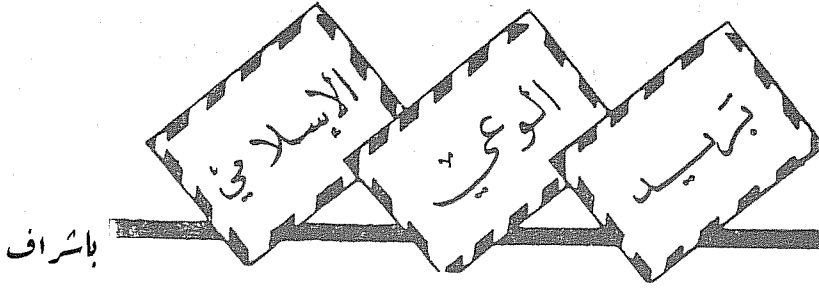 بَريد الوعيْ الإسلاميّ
باشراف